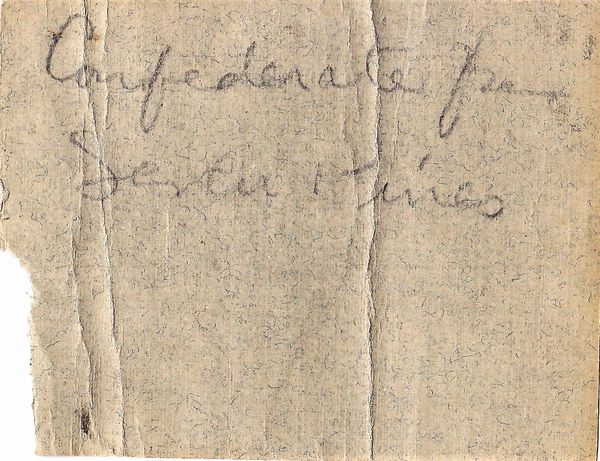 Confederate from
Seven Pines